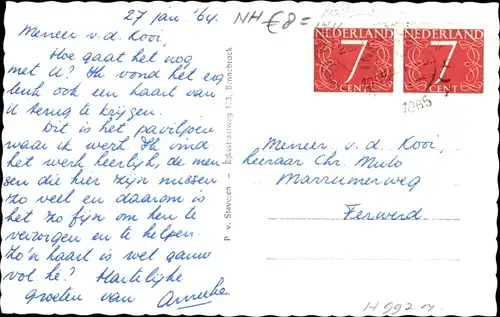 27 jan '64.
NH €8=
Meneer v.d. Kooi,
Hoe gaat het nog
met U? Ik vond het eig
leuk ook een kaart van
U terug te krijgen.
Dit is het paviljoen
waar ik werk. Ik vind
het werk heerlijk, de men
sen die hier zijn missen
zo veel en daarom is
het zo fijn om hen te
verzorgen en te helpen.
Zo'n kaart is wel gauw
vol hè? Hartelijke
groeten van Anneke.
P. v. Steveren - Rijksstraatweg 135, Bennebroek
NEDERLAND
7
CENT
NEDERLAND
7
CENT
1965
Meneer v.d. Kooi,
leeraar Chr. Mulo
Marrumerweg
Ferwerd
H 992